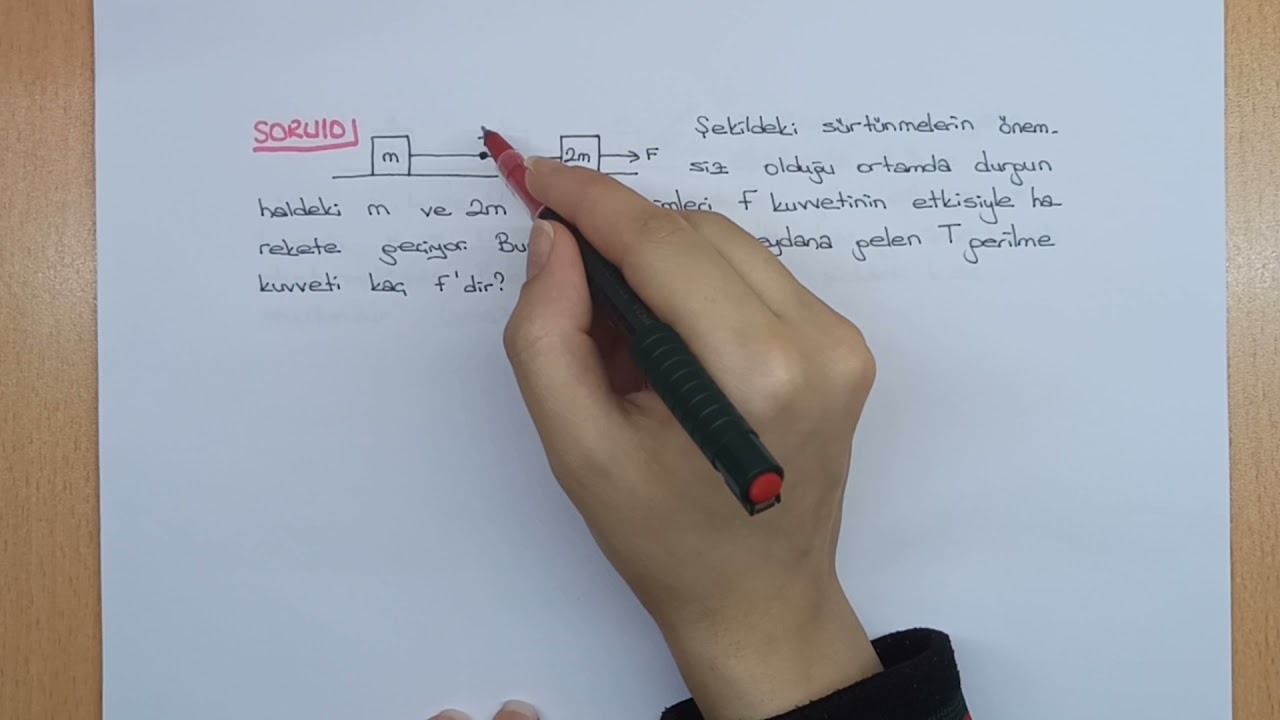 SORU10
m 2m F
Şekildeki sürtünmelerin önem-
siz olduğu ortamda durgun
haldeki m ve 2m F kuvvetinin etkisiyle ha
rekete geçiyor. gelen T gerilme
kuvveti kaç F'dir?